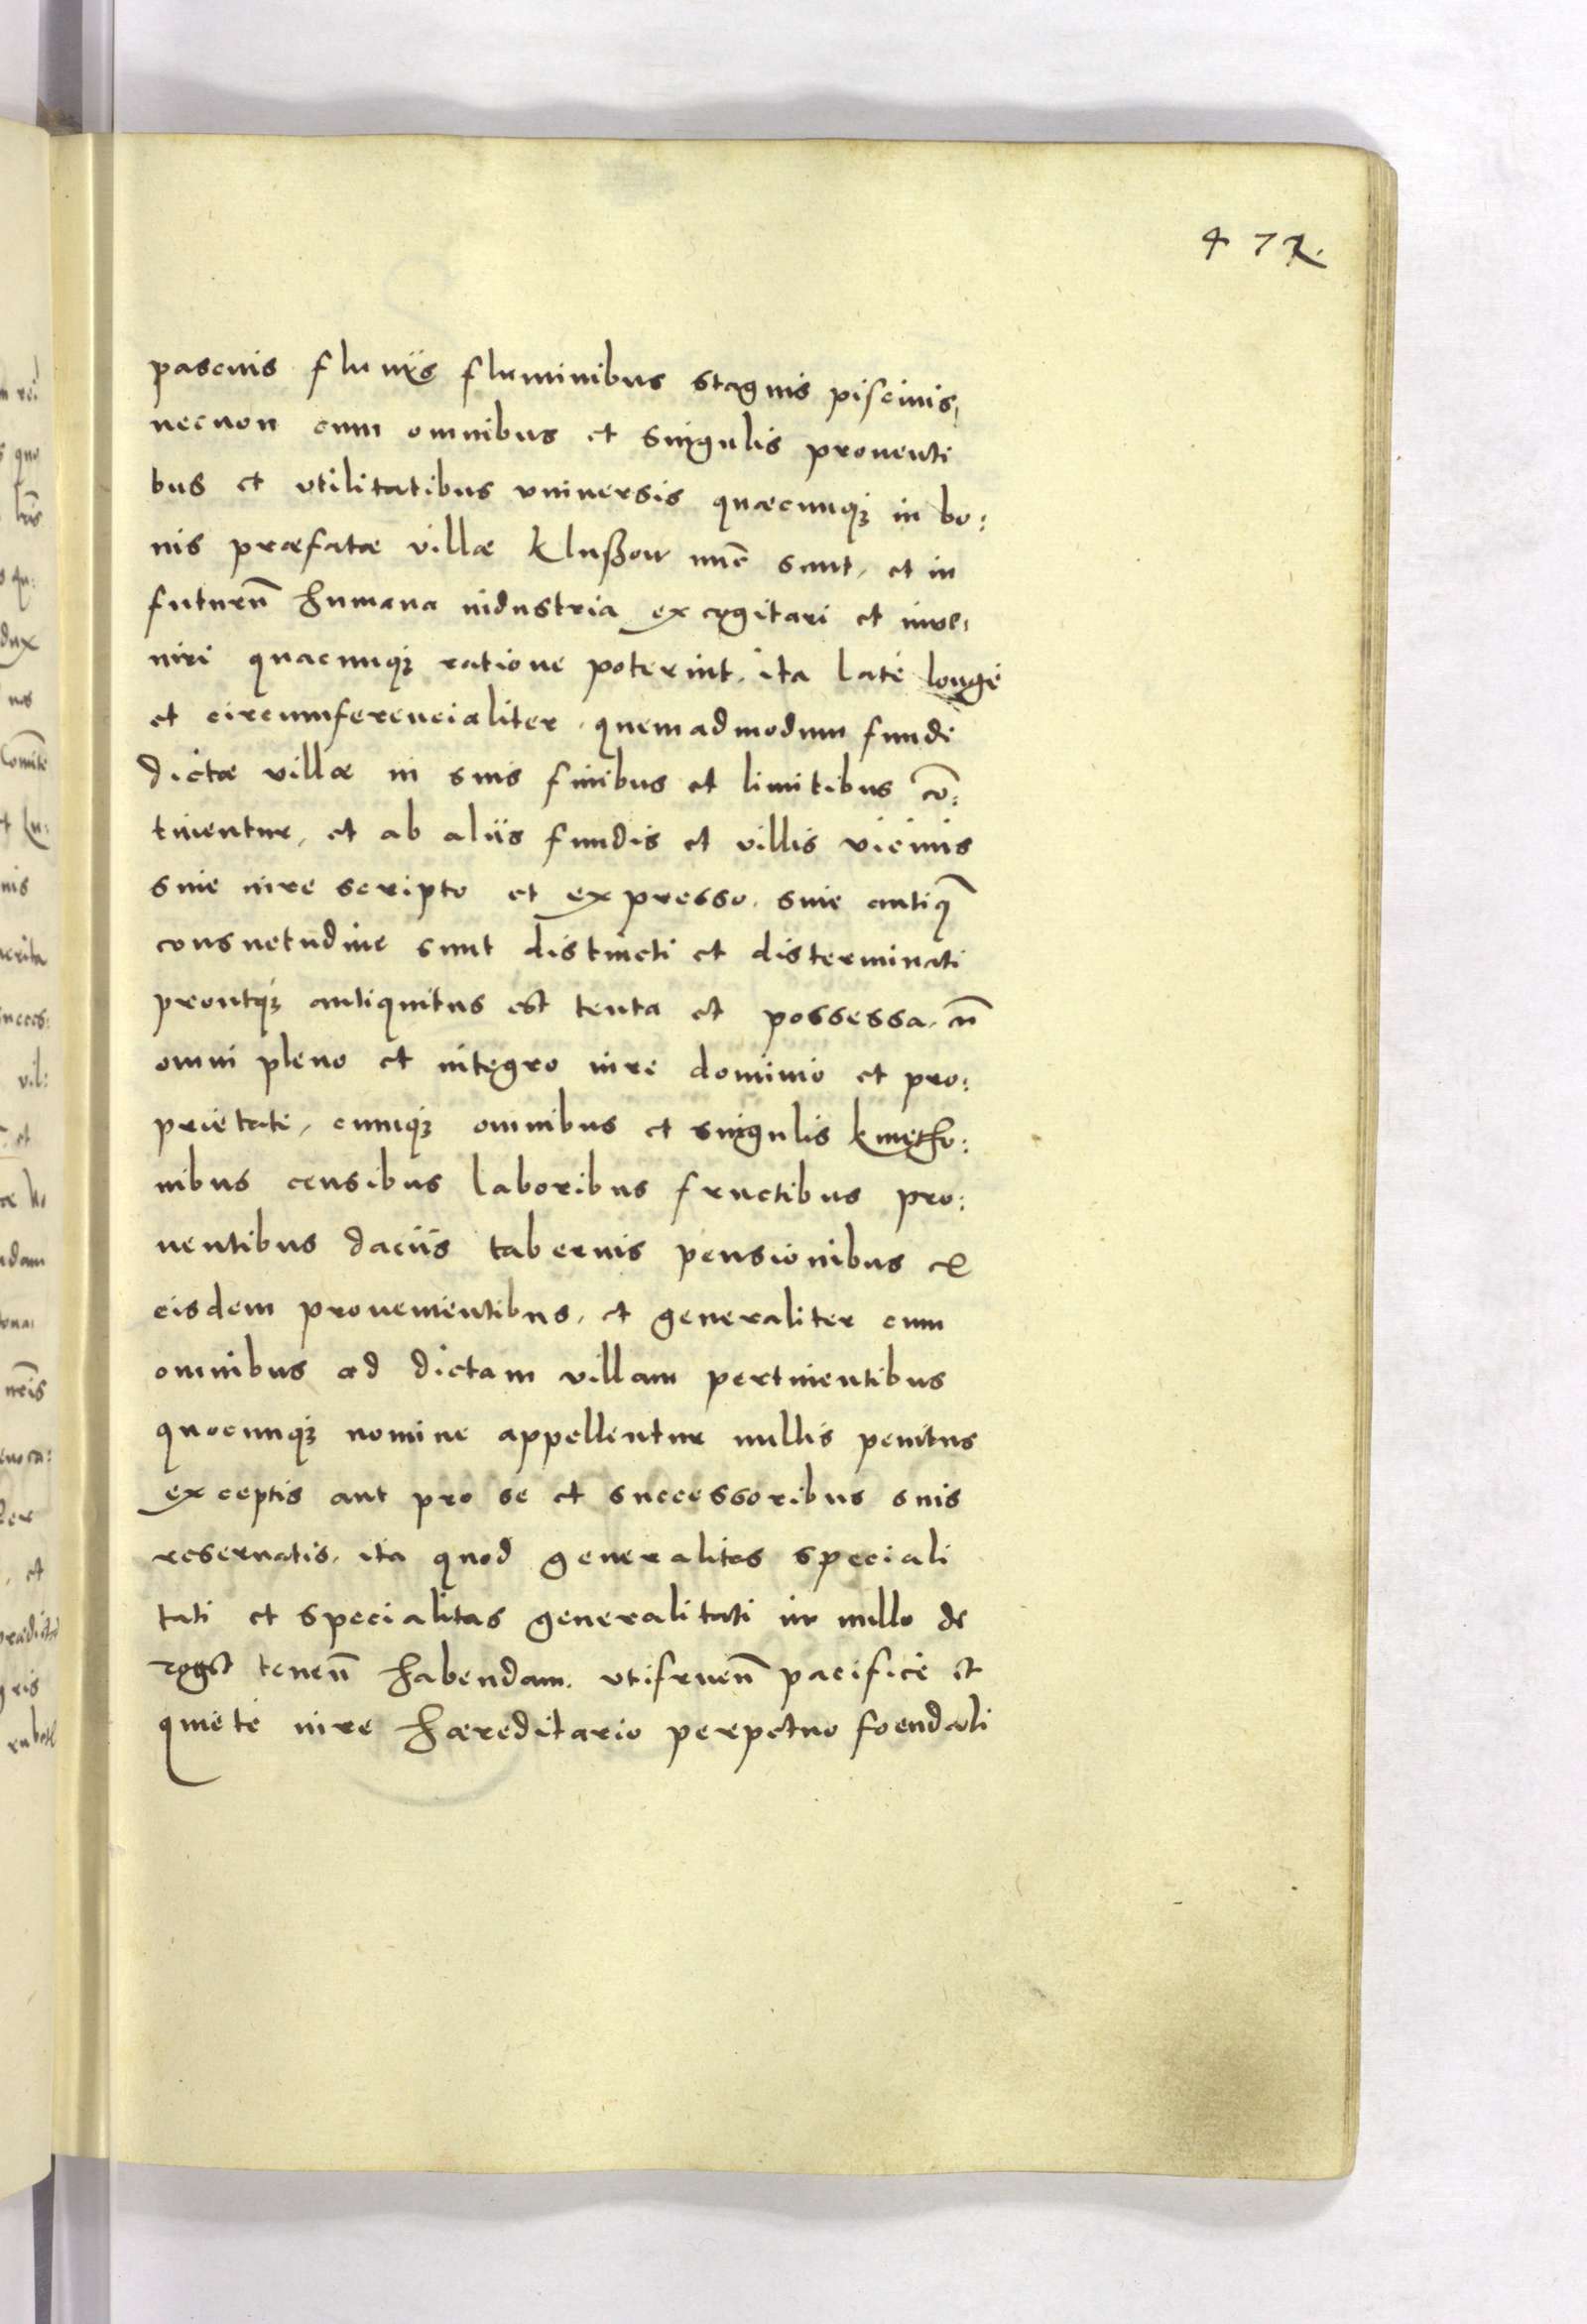 472.
pascuis fluuijs fluminibus stagnis piscinis,
necnon cum omnibus et singulis prouenti
bus et vtilitatibus vniuersis quæcunqȝ in bo:
nis præfatæ villæ Klußow nūc sunt, et in
futurū humana industria excogitari et inue,
niri quacunqȝ ratione poterint, ita laté longé
et circumferencialiter, quemadmodum fundi
dictæ villæ in suis finibus et limitibus cō:
tinentur, et ab alijs fundis et villis vicinis
siue iure scripto et expresso, siue antiq̄
consuetudine sunt distincti et disterminati
proutqȝ antiquitus est tenta et possessa, cū
omni pleno et integro iure dominio et pro:
prietate, cumqȝ omnibus et singulis kmetho:
nibus censibus laboribus fructibus pro:
uentibus dacijs tabernis pensionibus ex
eisdem prouenientibus, et generaliter cum
omnibus ad dictam villam pertinentibus
quocunqȝ nomine appellentur nullis penitus
exceptis aut pro se et successoribus suis
reseruatis, ita quod generalitas speciali
tati et specialitas generalitati in nullo de
roget tenen̄ habendam, vtifruen̄ pacificé et
quieté iure hæreditario perpetuo foendali